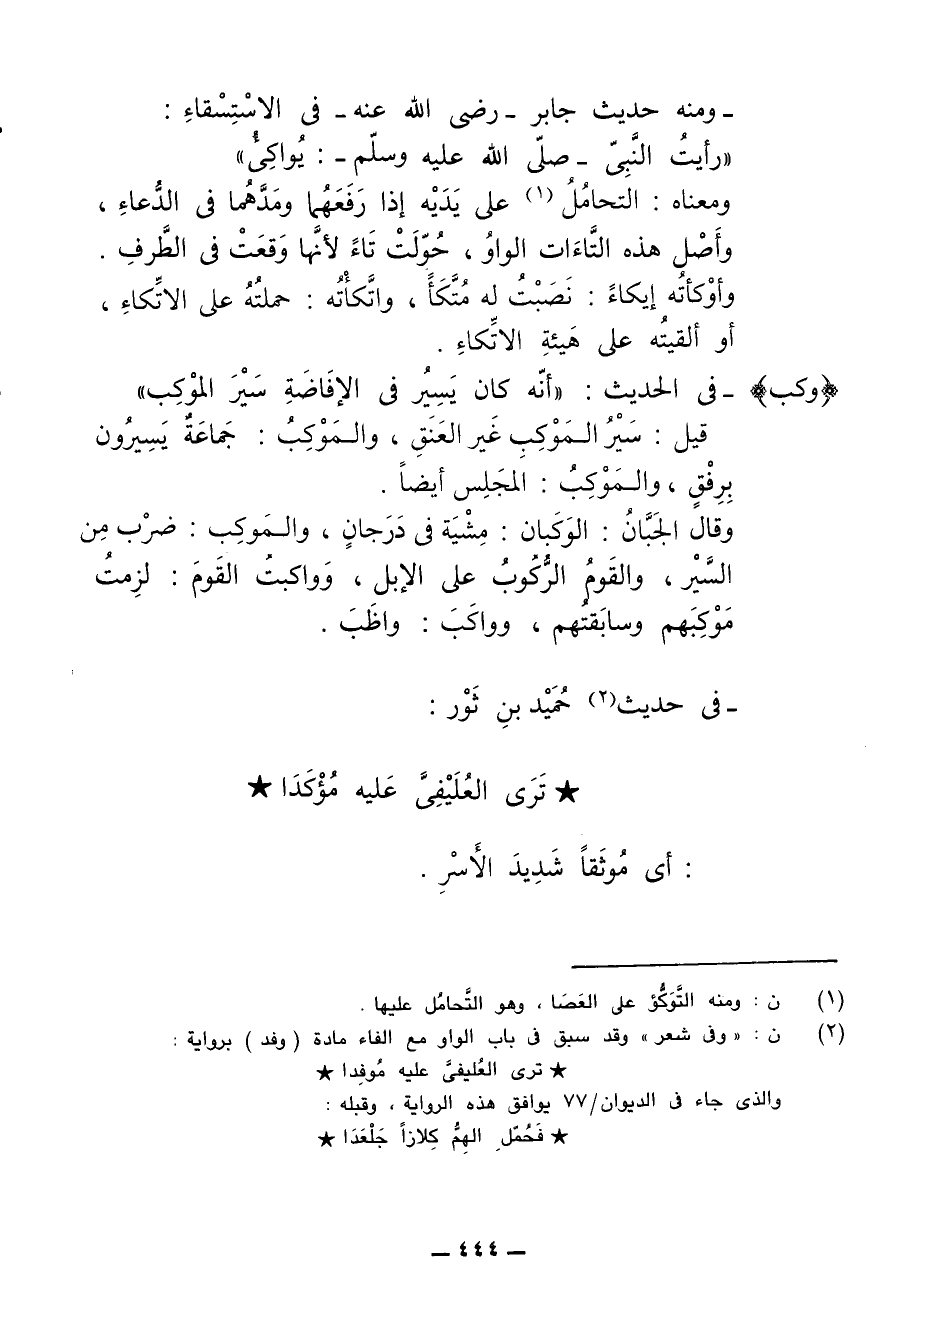 ـ ومنه حديث جابر ـ رضى الله عنه ـ فى الاسْتِسْقاءِ :
«رأيتُ النَّبىّ ـ صلّى الله عليه وسلّم ـ : يُواكِئُ»
ومعناه : التحامُلُ (١) على يَدَيْه إذا رَفَعَهُما ومَدَّهُما فى الدُّعاءِ ،
وأَصْل هذه التَّاءَات الواوُ ، حُوِّلَتْ تَاءً لأنَّها وَقعَتْ فى الطَّرفِ .
وأوْكأتُه إيكاءً : نَصَبْتُ له مُتَّكَأً ، واتَّكأْتُه : حملتُهُ على الاتِّكاءِ ،
أو ألقيتُه على هَيئةِ الاتِّكاءِ .
﴿وكب﴾ ـ فى الحديث : «أنّه كان يَسِيُر فى الإفَاضَةِ سَيْرَ الموْكِب»
قيل : سَيْرُ المَوْكِبِ غَير العَنَقِ ، والمَوْكِبُ : جَماعَةٌ يَسِيرُون
بِرِفْقٍ ، والمَوْكِبُ : المجَلِس أيضاً .
وقال الجَبَّانُ : الوَكَبان : مِشْيَة فى دَرَجانٍ ، والموكِب : ضرْب مِن
السَّيْر ، والقومُ الرُّكُوبُ على الإبل ، وَواكبتُ القَومَ : لزِمتُ
مَوْكِبَهم وسابَقتُهم ، وواكَبَ : واظَبَ .
ـ فى حديث(٢) حُمَيْد بنِ ثَوْر :
★ تَرَى العُلَيْفِىَّ عَليه مُؤْكَدَا ★
: أى مُوثَقاً شَدِيدَ الأَسْرِ .
(١) ن : ومنه التَّوَكُّؤ على العَصَا ، وهو التَّحامُل عليها .
(٢) ن : « وفى شعر » وقد سبق فى باب الواو مع الفاء مادة ( وفد ) برواية :
★ ترى العُليفىَّ عليه مُوفدا ★
والذى جاء فى الديوان/٧٧ يوافق هذه الرواية ، وقبله :
★ فَحُمّلِ الهِمُّ كِلازاً جَلْعَدَا ★
ـ ٤٤٤ ـ